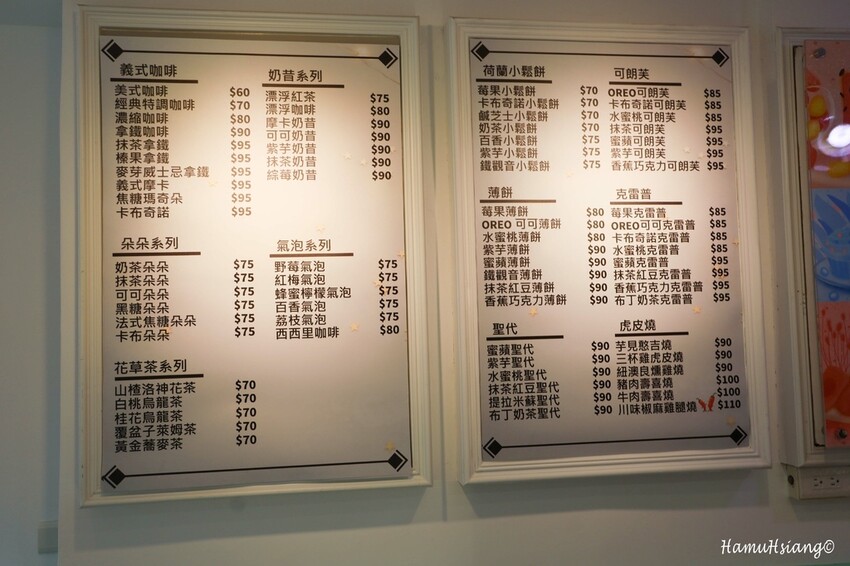 義式咖啡
美式咖啡 $60
經典特調咖啡 $70
濃縮咖啡 $80
拿鐵咖啡 $90
抹茶拿鐵 $95
榛果拿鐵 $95
麥芽威士忌拿鐵 $95
義式摩卡 $95
焦糖瑪奇朵 $95
卡布奇諾 $95
奶昔系列
漂浮紅茶 $75
漂浮咖啡 $80
摩卡奶昔 $90
可可奶昔 $90
紫芋奶昔 $90
抹茶奶昔 $90
綜莓奶昔 $90
朵朵系列
奶茶朵朵 $75
抹茶朵朵 $75
可可朵朵 $75
黑糖朵朵 $75
法式焦糖朵朵 $75
卡布朵朵 $75
氣泡系列
野莓氣泡 $75
紅梅氣泡 $75
蜂蜜檸檬氣泡 $75
百香氣泡 $75
荔枝氣泡 $75
西西里咖啡 $80
花草茶系列
山楂洛神花茶 $70
白桃烏龍茶 $70
桂花烏龍茶 $70
覆盆子萊姆茶 $70
黃金蕎麥茶 $70
荷蘭小鬆餅
莓果小鬆餅 $70
卡布奇諾小鬆餅 $70
鹹芝士小鬆餅 $70
奶茶小鬆餅 $70
百香小鬆餅 $75
紫芋小鬆餅 $75
鐵觀音小鬆餅 $75
可朗芙
OREO可朗芙 $85
卡布奇諾可朗芙 $85
水蜜桃可朗芙 $85
抹茶可朗芙 $95
蜜蘋可朗芙 $95
紫芋可朗芙 $95
香蕉巧克力可朗芙 $95
薄餅
莓果薄餅 $80
OREO 可可薄餅 $80
水蜜桃薄餅 $80
紫芋薄餅 $90
蜜蘋薄餅 $90
鐵觀音薄餅 $90
抹茶紅豆薄餅 $90
香蕉巧克力薄餅 $90
克雷普
莓果克雷普 $85
OREO可可克雷普 $85
卡布奇諾克雷普 $85
水蜜桃克雷普 $85
蜜蘋克雷普 $95
抹茶紅豆克雷普 $95
香蕉巧克力克雷普 $95
布丁奶茶克雷普 $95
聖代
蜜蘋聖代 $90
紫芋聖代 $90
水蜜桃聖代 $90
抹茶紅豆聖代 $90
提拉米蘇聖代 $90
布丁奶茶聖代 $90
虎皮燒
芋見憨吉燒 $90
三杯雞虎皮燒 $90
紐澳良燻雞燒 $90
豬肉壽喜燒 $100
牛肉壽喜燒 $100
川味椒麻雞腿燒 $110
HamuHsiang©